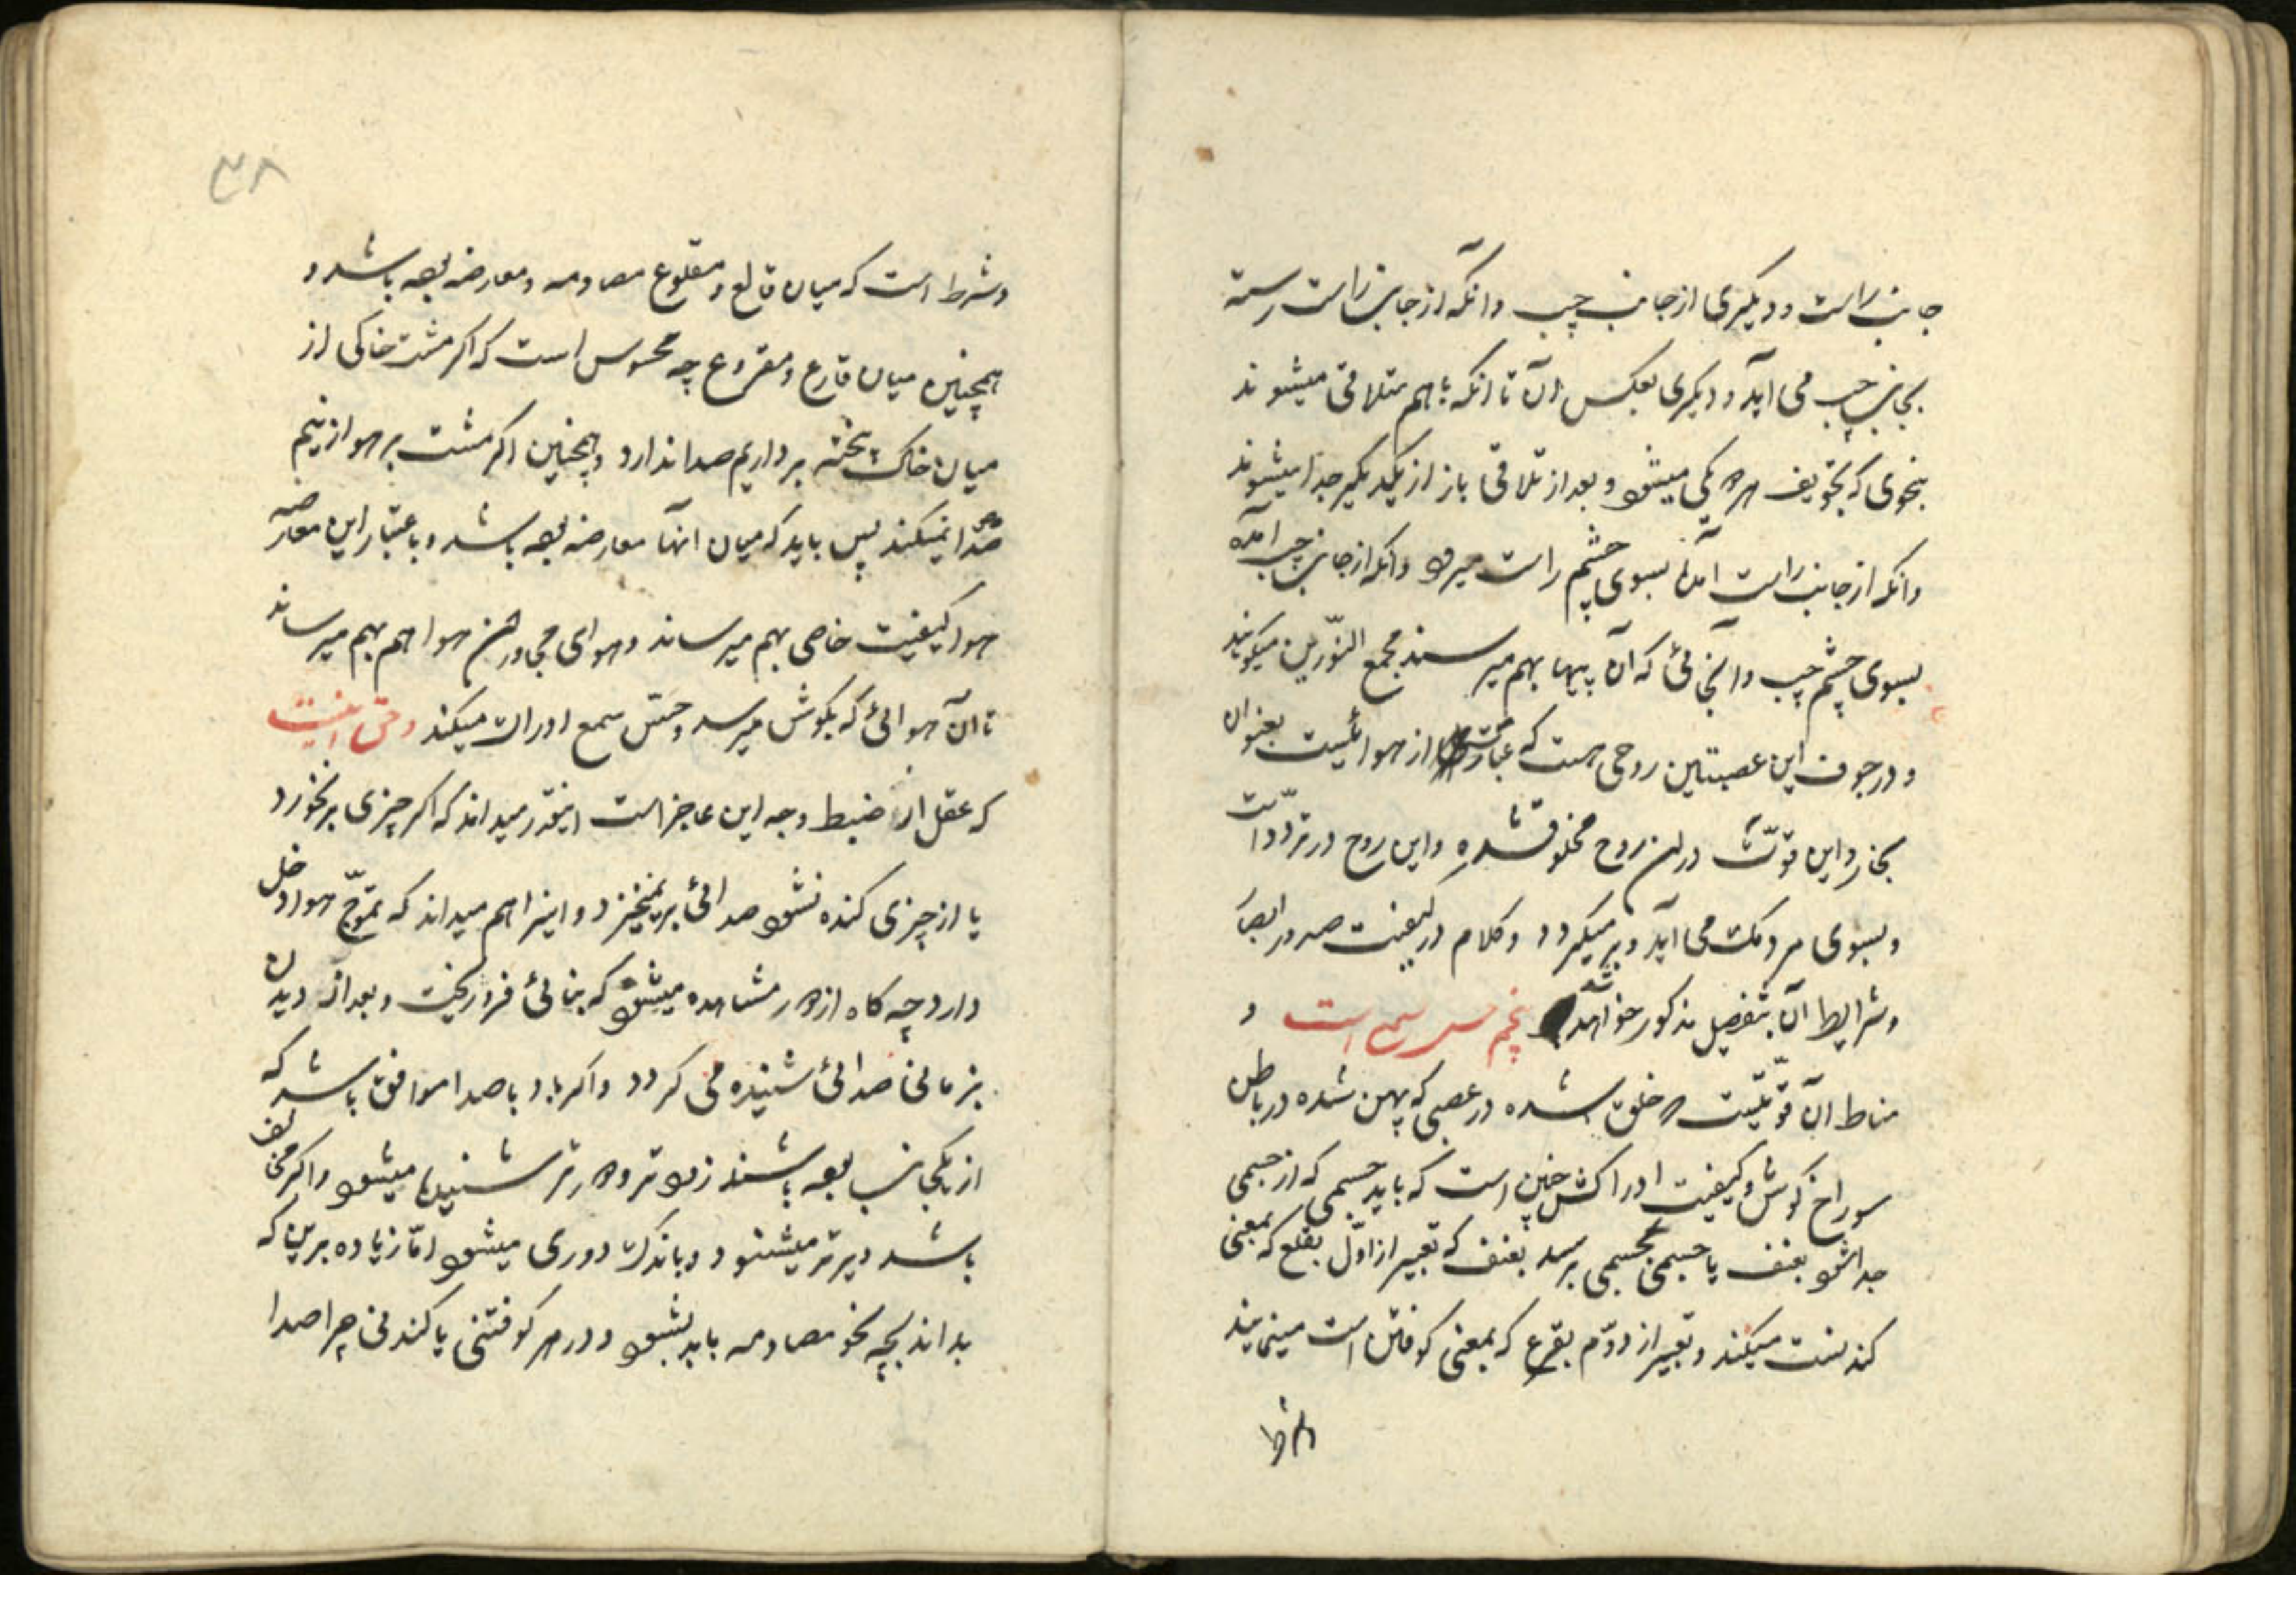 جانب راست و دیگری از جانب چپ و آنکه از جانب راست رسته
بجانب چپ می آید و دیگری بعکس آن تا آنکه باهم متلاقی میشوند
بنحوی که تجویف هر دو یکی میشود و بعد از تلاقی باز از یکدیگر جدا میشوند
و آنکه از جانب راست آمده بسوی چشم راست میرود و آنکه از جانب چپ آمده
بسوی چشم چپ و آنجائی که آن پیها بهم میرسند مجمع النّورین میگویند
و در جوف این عصبتین روحی هست که عبارتست از هوائیست بعنوان
بخار و این قوّت در آن روح مخلوق شده و این روح در تردّد است
و بسوی مردمک می آید و بر میگردد و کلام در کیفیت صدور ابصار
و شرایط آن بتفصیل مذکور خواهد شد پنجم حس سمع است و
مناط آن قوّتیست که خلق شده در عصبی که پهن شده در باطن
سوراخ گوش و کیفیت ادراکش چنین است که باید جسمی که از جسمی
جدا شود بعنف یا جسمی بجسمی برسد بعنف که تعبیر از اوّل بقلع که بمعنی
کندنست میکند و تعبیر از دوّم بقرع که بمعنی کوفتن است مینمایند
و شرط
۳۸
و شرط است که میان قالع و مقلوع مصادمه و معارضه بوده باشد و
همچنین میان قارع و مقروع چه محسوس است که اگر مشت خاکی از
میان خاک پخته برداریم صدا ندارد و همچنین اگر مشت بر هوا زنیم
صدا نمیکند پس باید که میان آنها معارضه بوده باشد و باعتبار این معارضه
هوا کیفیت خاصی بهم میرساند و هوای مجاور آن هوا هم بهم میرساند
تا آن هوائی که بگوش میرسد و حسّ سمع ادراک میکند و حق اینست
که عقل از ضبط وجه این عاجز است اینقدر میداند که اگر چیزی بر نخورد
یا از چیزی کنده نشود صدائی بر نمیخیزد و اینرا هم میداند که تموّج هوا دخل
دارد چه گاه از دور مشاهده میشود که بنائی فرو ریخت و بعد از دیدن
بزمانی صدائی شنیده می گردد و اگر باد با صدا موافق باشد که
از یکجانب بوده باشند زودتر و دورتر شنیده میشود و اگر مخالف
باشد دیرتر میشنود و باندک دوری میشود امّا زیاده برین که
بداند بچه نحو مصادمه باید بشود و در هر کوفتنی یا کندنی چرا صدا